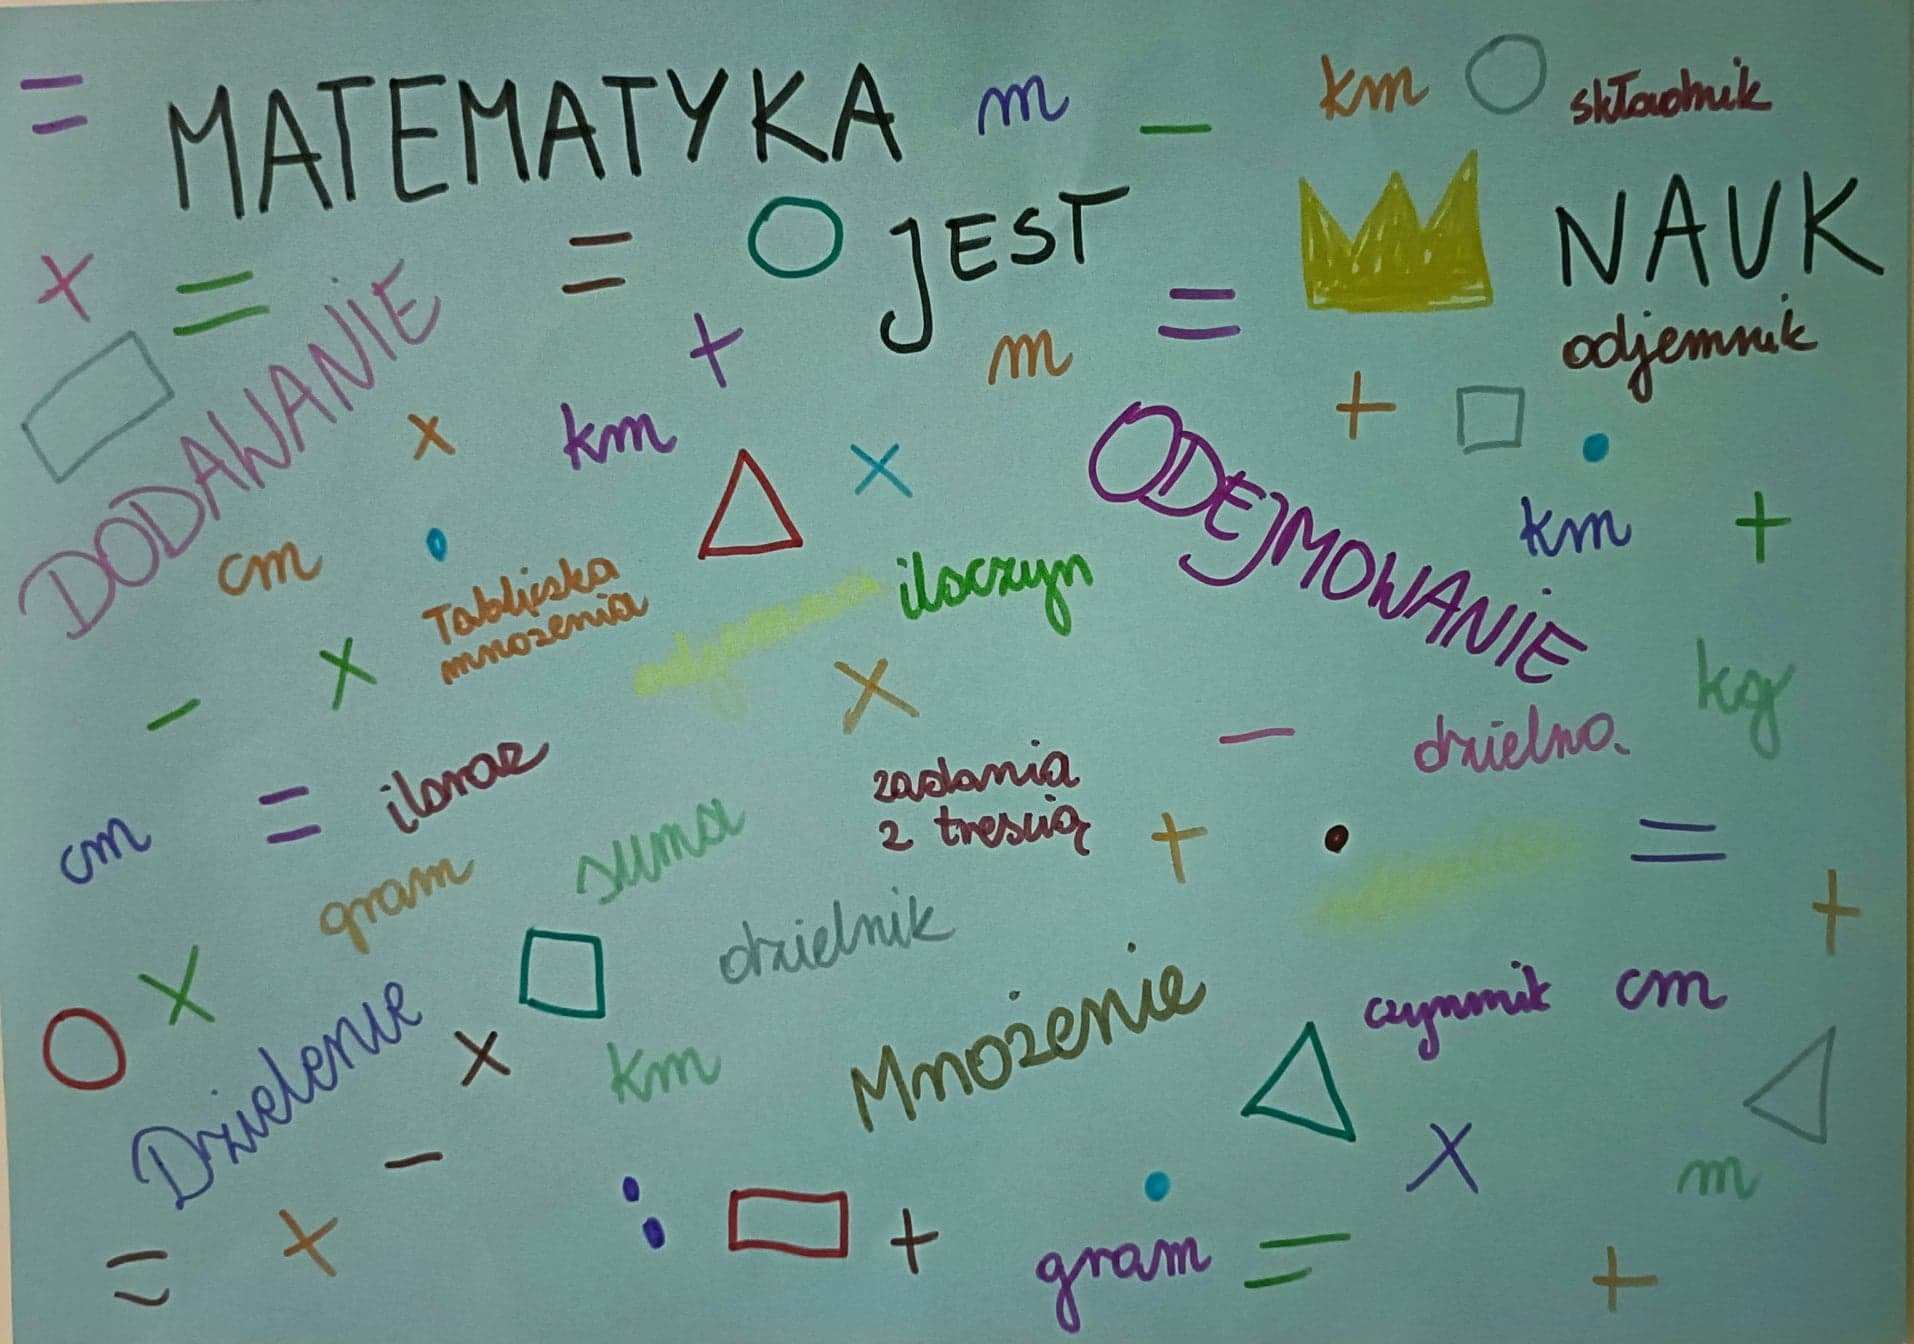 =
MATEMATYKA m - km składnik
JEST NAUK
+ = =
+ m = odjemnik
DODAWANIE
x km x + •
ODEJMOWANIE
cm • km +
Tabliczka
mnożenia
iloczyn
- x x kg
- dzielna
cm = iloraz
zadania
z treścią
gram suma + • =
dzielnik +
x
Dzielenie x km Mnożenie czynnik cm
- x m
= + : + • gram = +